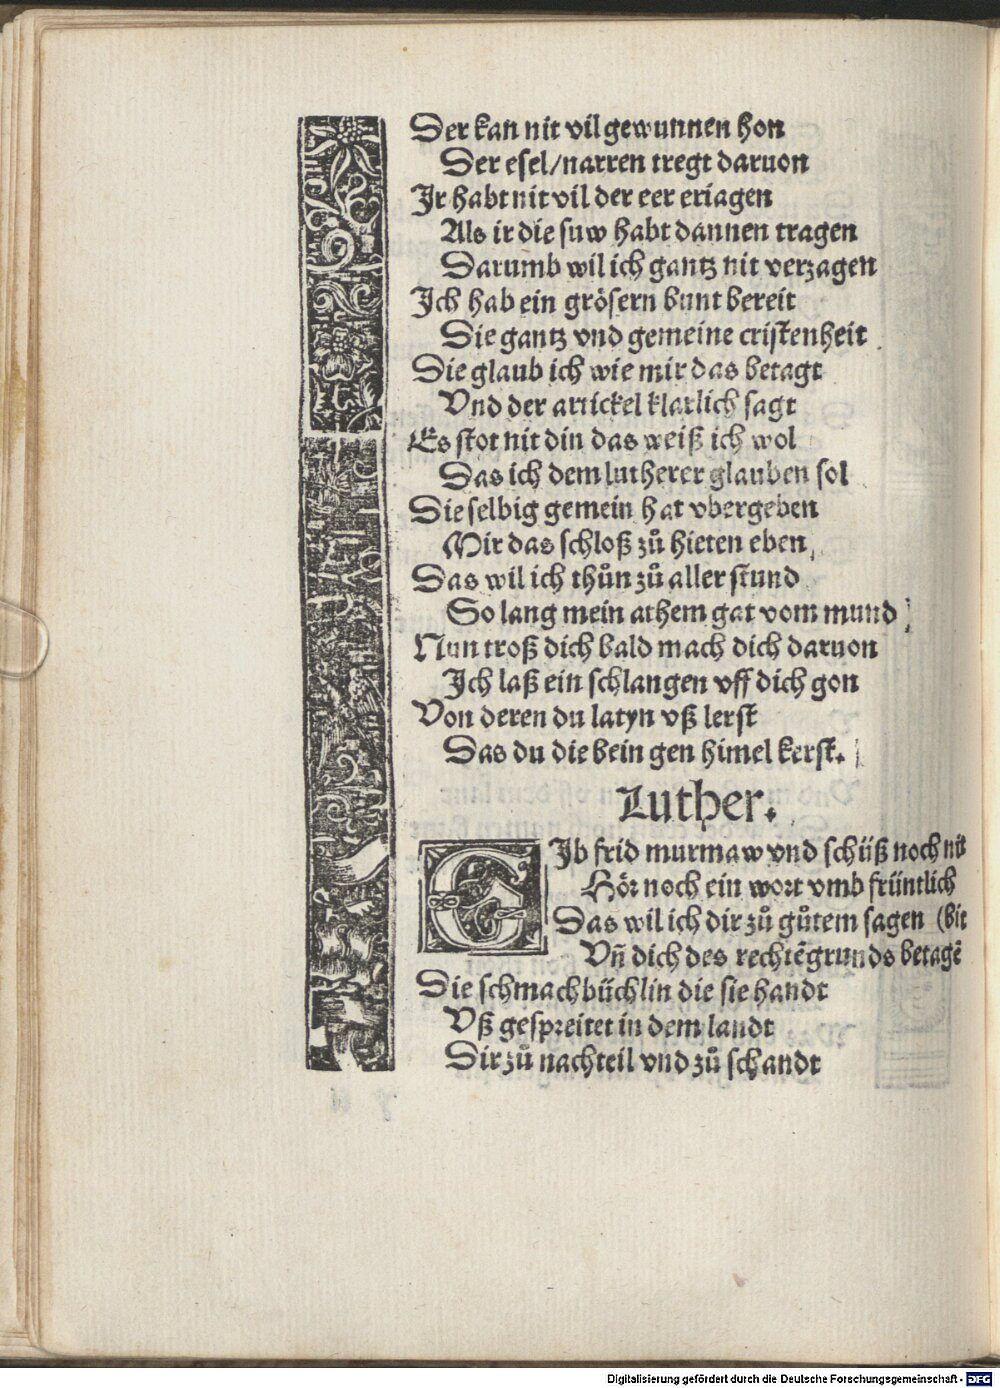 Der kan nit vil gewunnen hon
Der esel/narren tregt daruon
Jr habt nit vil der eer eriagen
Als ir die suw habt dannen tragen
Darumb wil ich gantz nit verzagen
Jch hab ein grösern bunt bereit
Die gantz vnd gemeine cristenheit
Die glaub ich wie mir das betagt
Vnd der artickel klarlich sagt
Es stot nit din das weiß ich wol
Das ich dem lutherer glauben sol
Die selbig gemein hat vbergeben
Mir das schloß zů hieten eben
Das wil ich thůn zů aller stund
So lang mein athem gat vom mund
Nun troß dich bald mach dich daruon
Jch laß ein schlangen vff dich gon
Von deren du latyn vß lerst
Das du die bein gen himel kerst.
Luther.
GJb frid murmaw vnd schüß noch nit
Hör noch ein wort vmb früntlich
Das wil ich dir zů gůtem sagen (bit
Vñ dich des rechtē grunds betagē
Die schmachbüchlin die sie handt
Vß gespreitet in dem landt
Dir zů nachteil vnd zů schandt
Digitalisierung gefördert durch die Deutsche Forschungsgemeinschaft - DFG